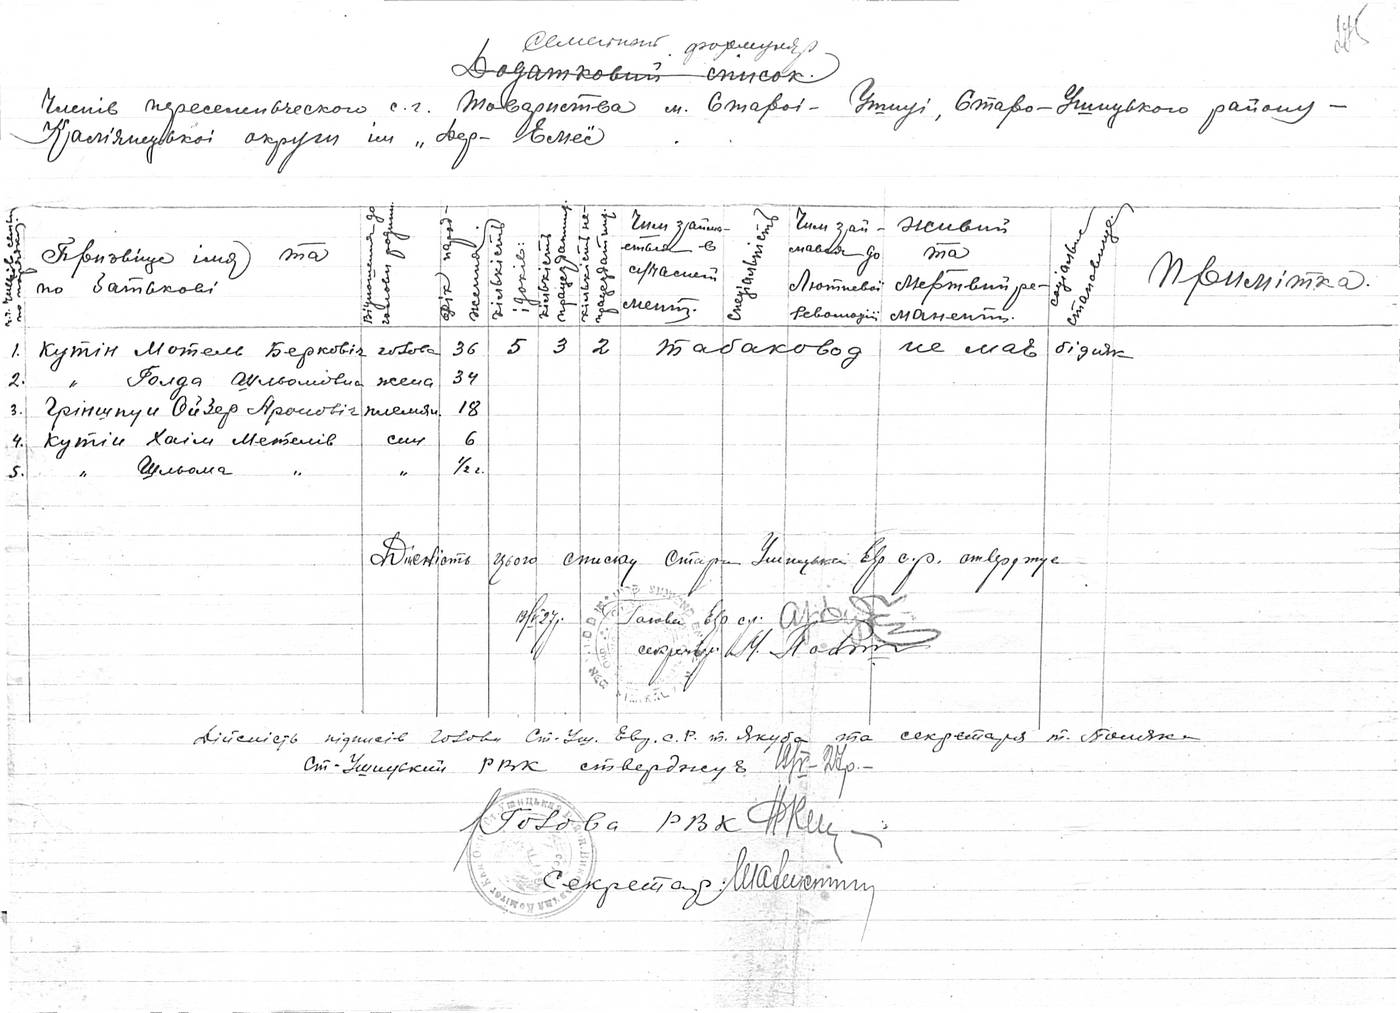 Семейний формуляр
Додатковий список.
Членів переселенческого с.г. Товариства м. Староі- Ушиці, Старо-Ушицького району-
Камъянецькоі округи ім "Дер- Емес
Прізвіще імя та
по батькові
Відношення до
голови родини.
Рік народ-
ження.
кількість
їдоків:
кількість
працездатних.
кількість не-
працездатних.
Чим займа-
ється в
сучасний
мент.
Спеціальність
Чим зай-
мався до
Лютневоі
Революціі
Живий
та
Мертвий ре-
манент.
соціальне
становище.
Примітка.
1. Кутін Мотель Беркович голова 36 5 3 2 табаковод не має бідняк
2. " Голда Шльомовна жена 34
3. Гріншпун Ойзер Аронович племян. 18
4. Кутін Хаім Мотелів син 6
5. " Шльома " " 1/2 г.
Дійсність цього списку Старо Ушицька Евр с.р. стверджує
Голова Евр с.р.
секретар М.
Дійсність підписів голови Ст-Уш. Евр. с.Р. т. Якуба та секретаря т. Поляка
Ст-Ушицький РВК стверджує
Голова РВК
Секретар: